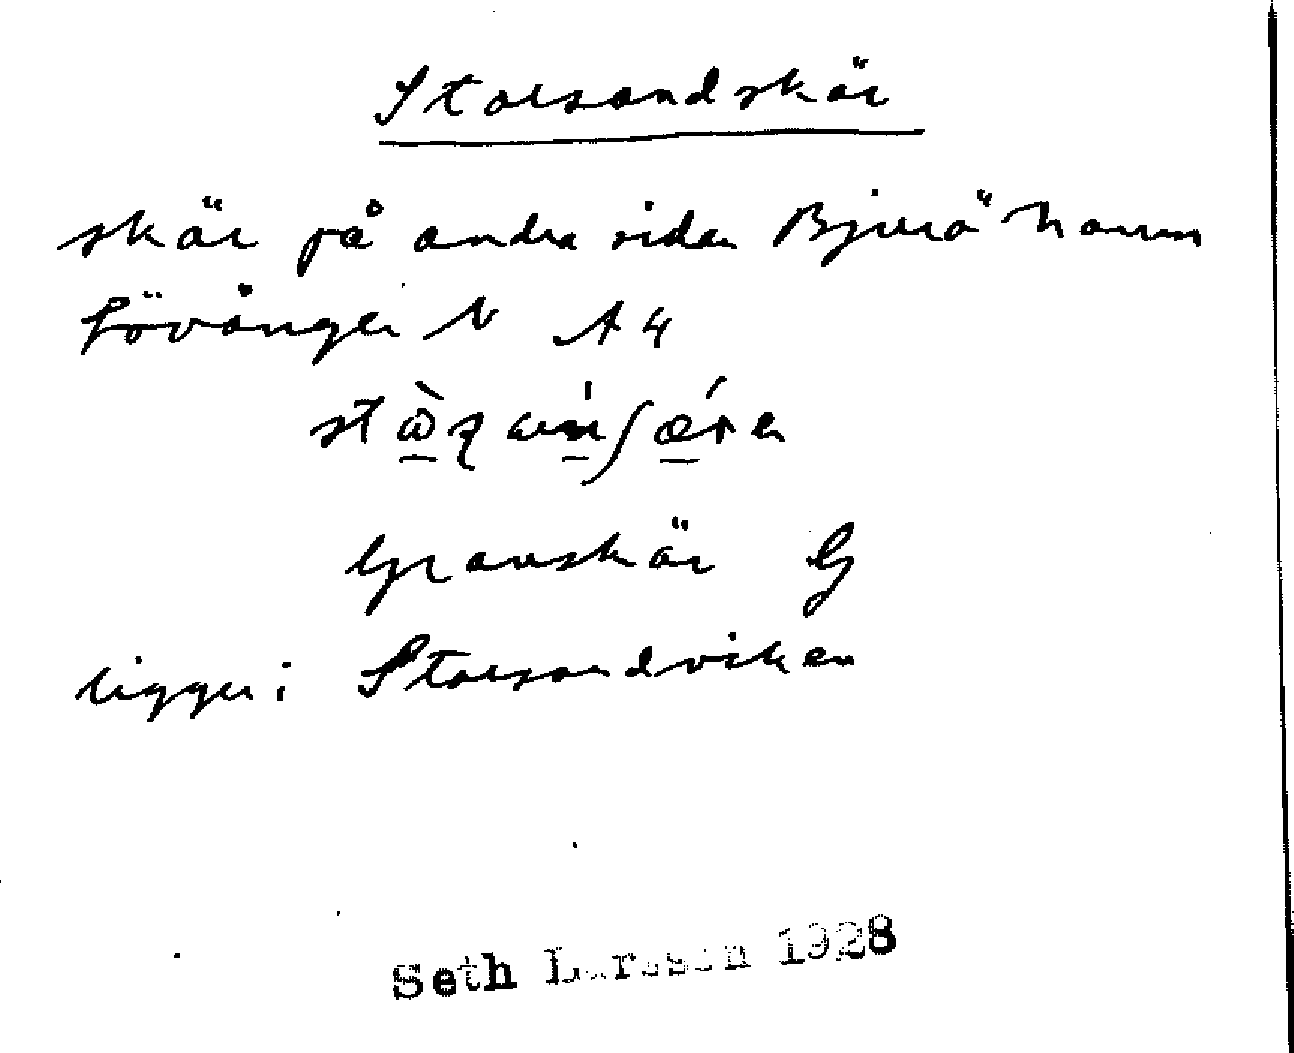 Storsandskär
skär på andra sidan Bjurö hamn
Lövånger N A 4
Granskär G
ligger i Storsandviken
Seth Larsson 1928